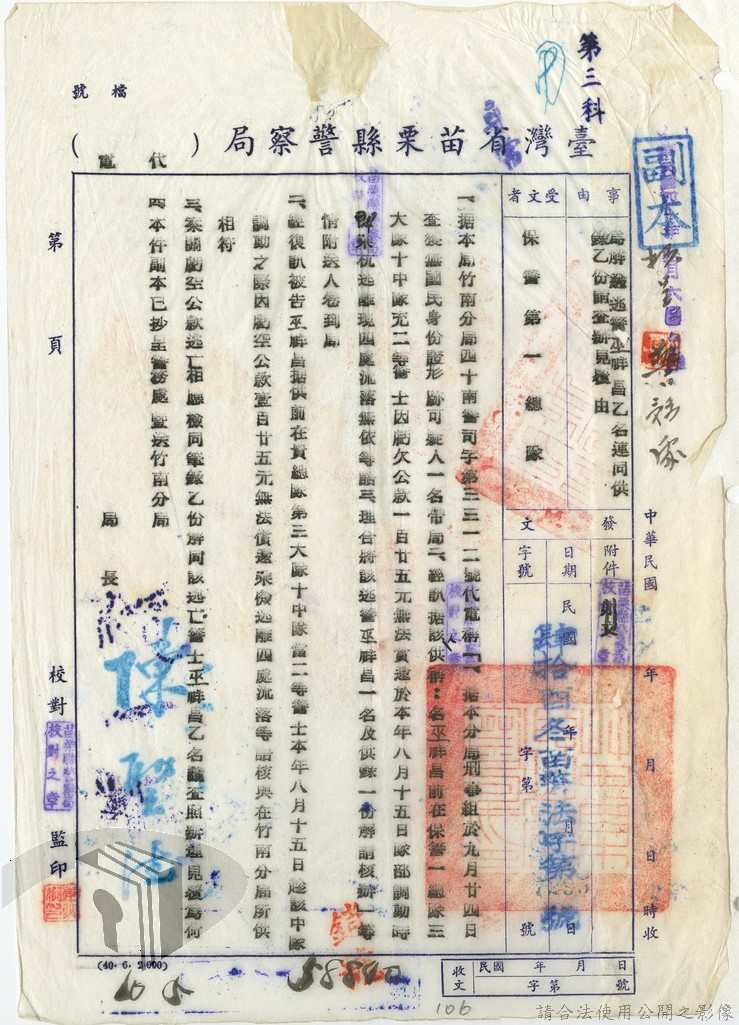 第三科
檔號
臺灣省苗栗縣警察局（代電）
副本
事由
為解送逃警巫祥昌乙名連同供
錄乙份請查辦見復由
受文者
保警第一總隊
發文
附件
如文
日期
民國 年 月 日
字號
字第 號
中華民國 年 月 日 時收
一、據本局竹南分局四十南警司字第三三一二號代電稱「一、據本分局刑事組於九月廿四日
查獲無國民身份證形跡可疑人一名帶局二、經訊據該供稱：名巫祥昌前在保警一總隊三
大隊十中隊充二等警士因虧欠公款一百廿五元無法賞還於本年八月十五日隊部調動時
乘机逃離現四處流落無依等語三、理合將該逃警巫祥昌一名及供錄一份解請核辦」等
情附送人卷到局
二、經復訊被告巫祥昌據供前在貴總隊第三大隊十中隊當二等警士本年八月十五日趁該中隊
調動之際因虧空公款壹百廿五元無法償還乘機逃離四處流落等語核與在竹南分局所供
相符
三、案關虧空公款逃亡相應檢同筆錄乙份解同該逃亡警士巫祥昌乙名請查照辦理見復為荷
四、本件副本已抄呈警務處暨送竹南分局
局長
陳
第 頁
校對
監印
(40.6.2,000)
58840
收文
民國 年 月 日
字第 號
106
請合法使用公開之影像